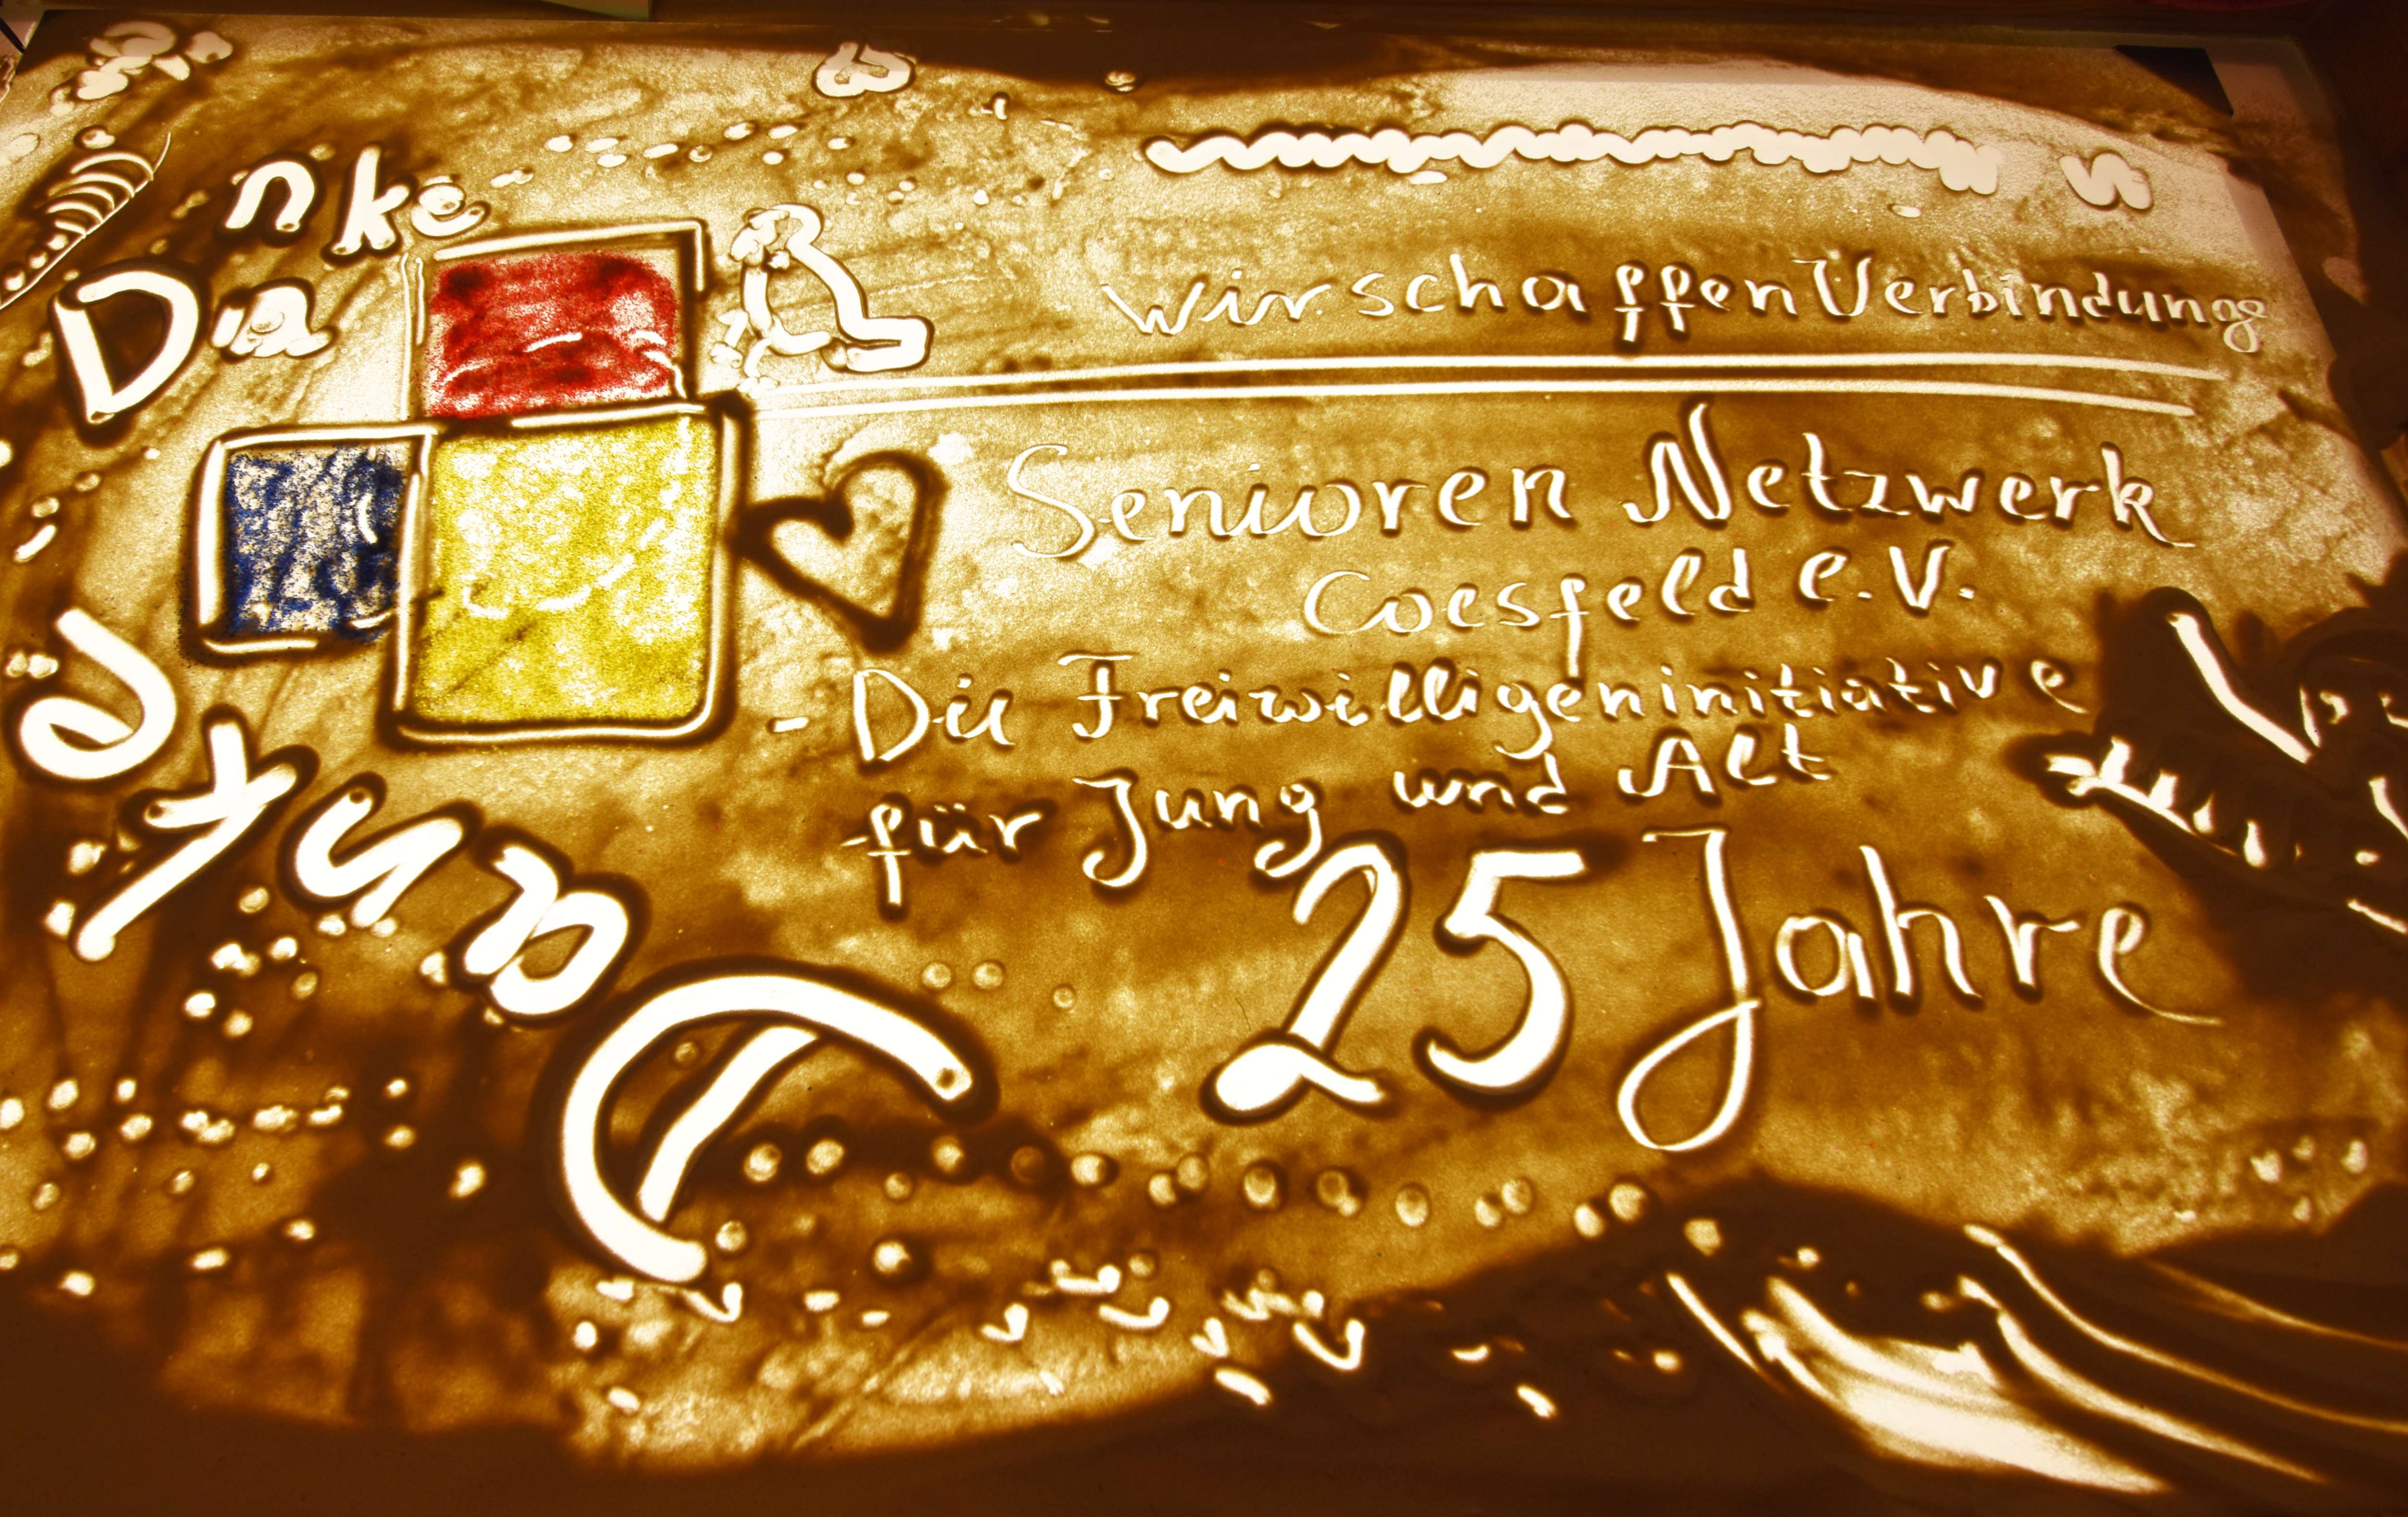 Danke
Wir schaffen Verbindung
Senioren Netzwerk
Coesfeld e.V.
- Die Freiwilligeninitiative
für Jung und Alt
25 Jahre
Danke